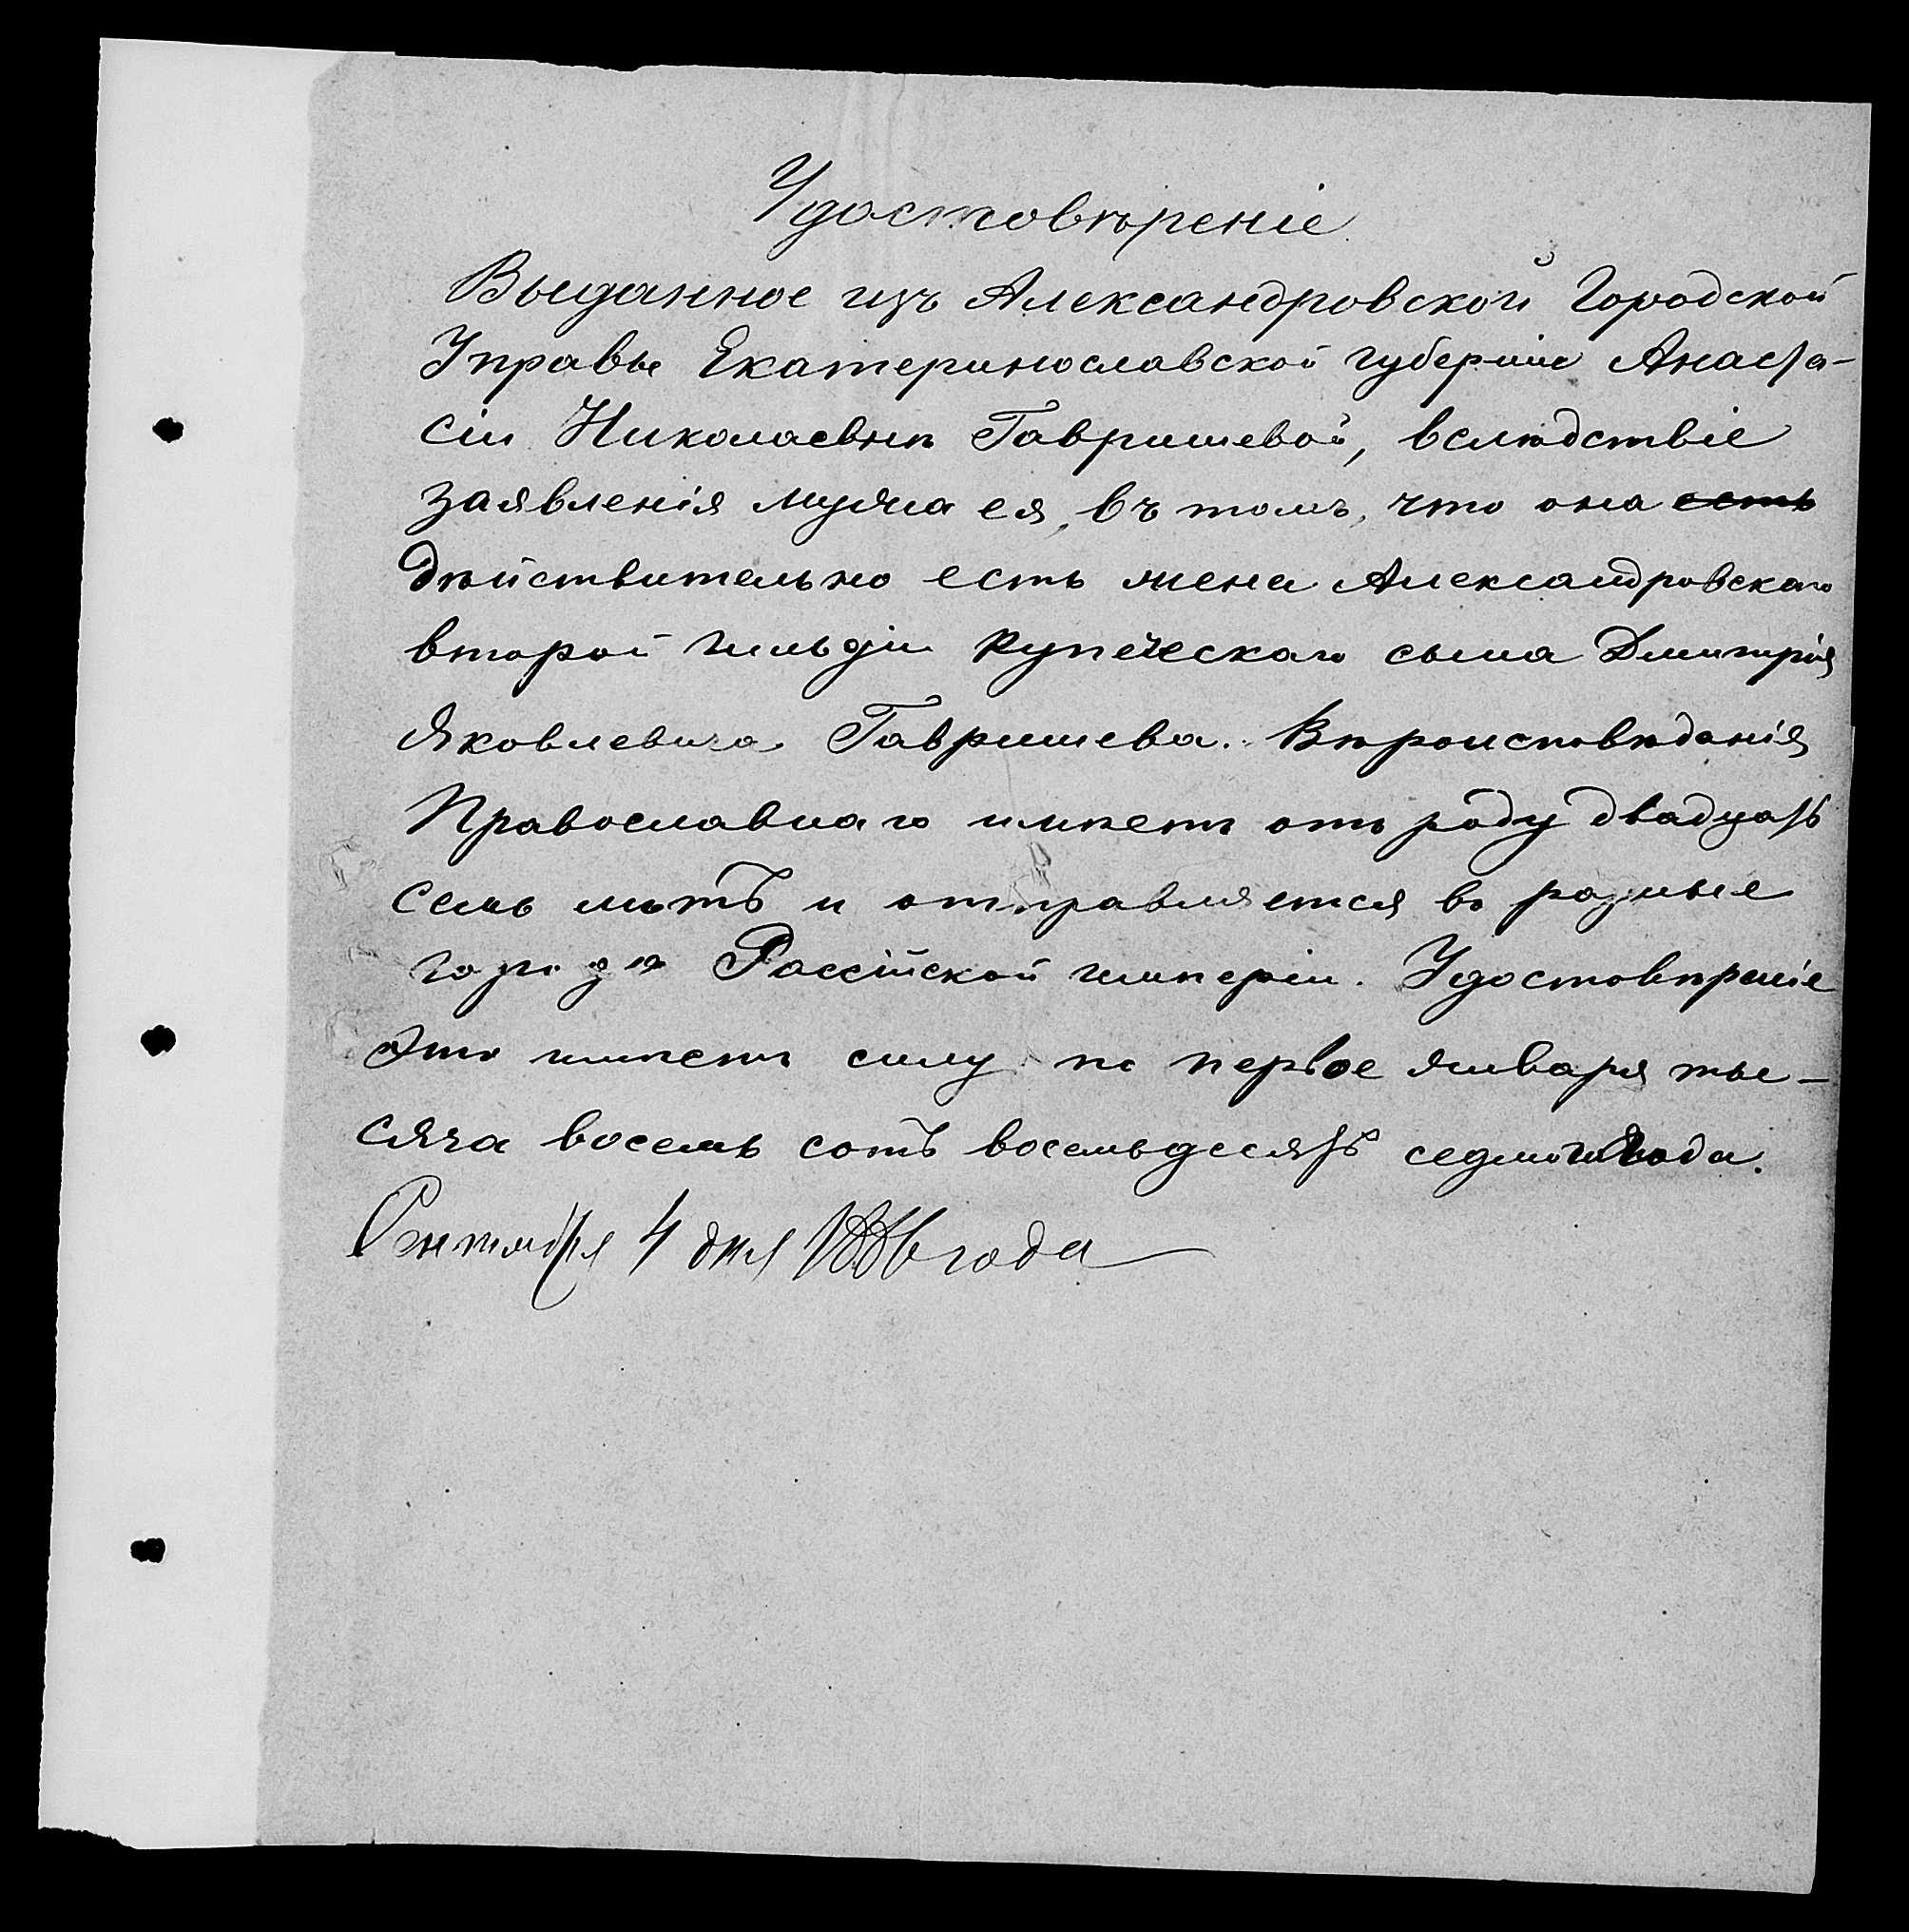 Удостовѣреніе
Выданное изъ Александровской Городской
Управы Екатеринославской губерніи Анаста-
сіи Николаевнѣ Гавришевой, вслѣдствіе
заявленія мужа ея, въ томъ, что она есть
дѣйствительно есть жена Александровскаго
второй гильдіи купеческаго сына Дмитрія
Яковлевича Гавришева. Вѣроисповѣданія
Православнаго имѣетъ отъ роду двадцать
семь лѣтъ и отправляется въ разные
города Россійской имперіи. Удостовѣреніе
это имѣетъ силу по первое января ты-
сяча восемь сотъ восемьдесятъ седмого года.
Сентября 4 дня 1886 года